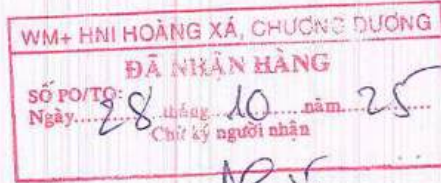 WM+ HNI HOÀNG XÁ, CHƯƠNG DƯƠNG
ĐÃ NHẬN HÀNG
SỐ PO/TO:
Ngày 28 tháng 10 năm 25
Chữ ký người nhận